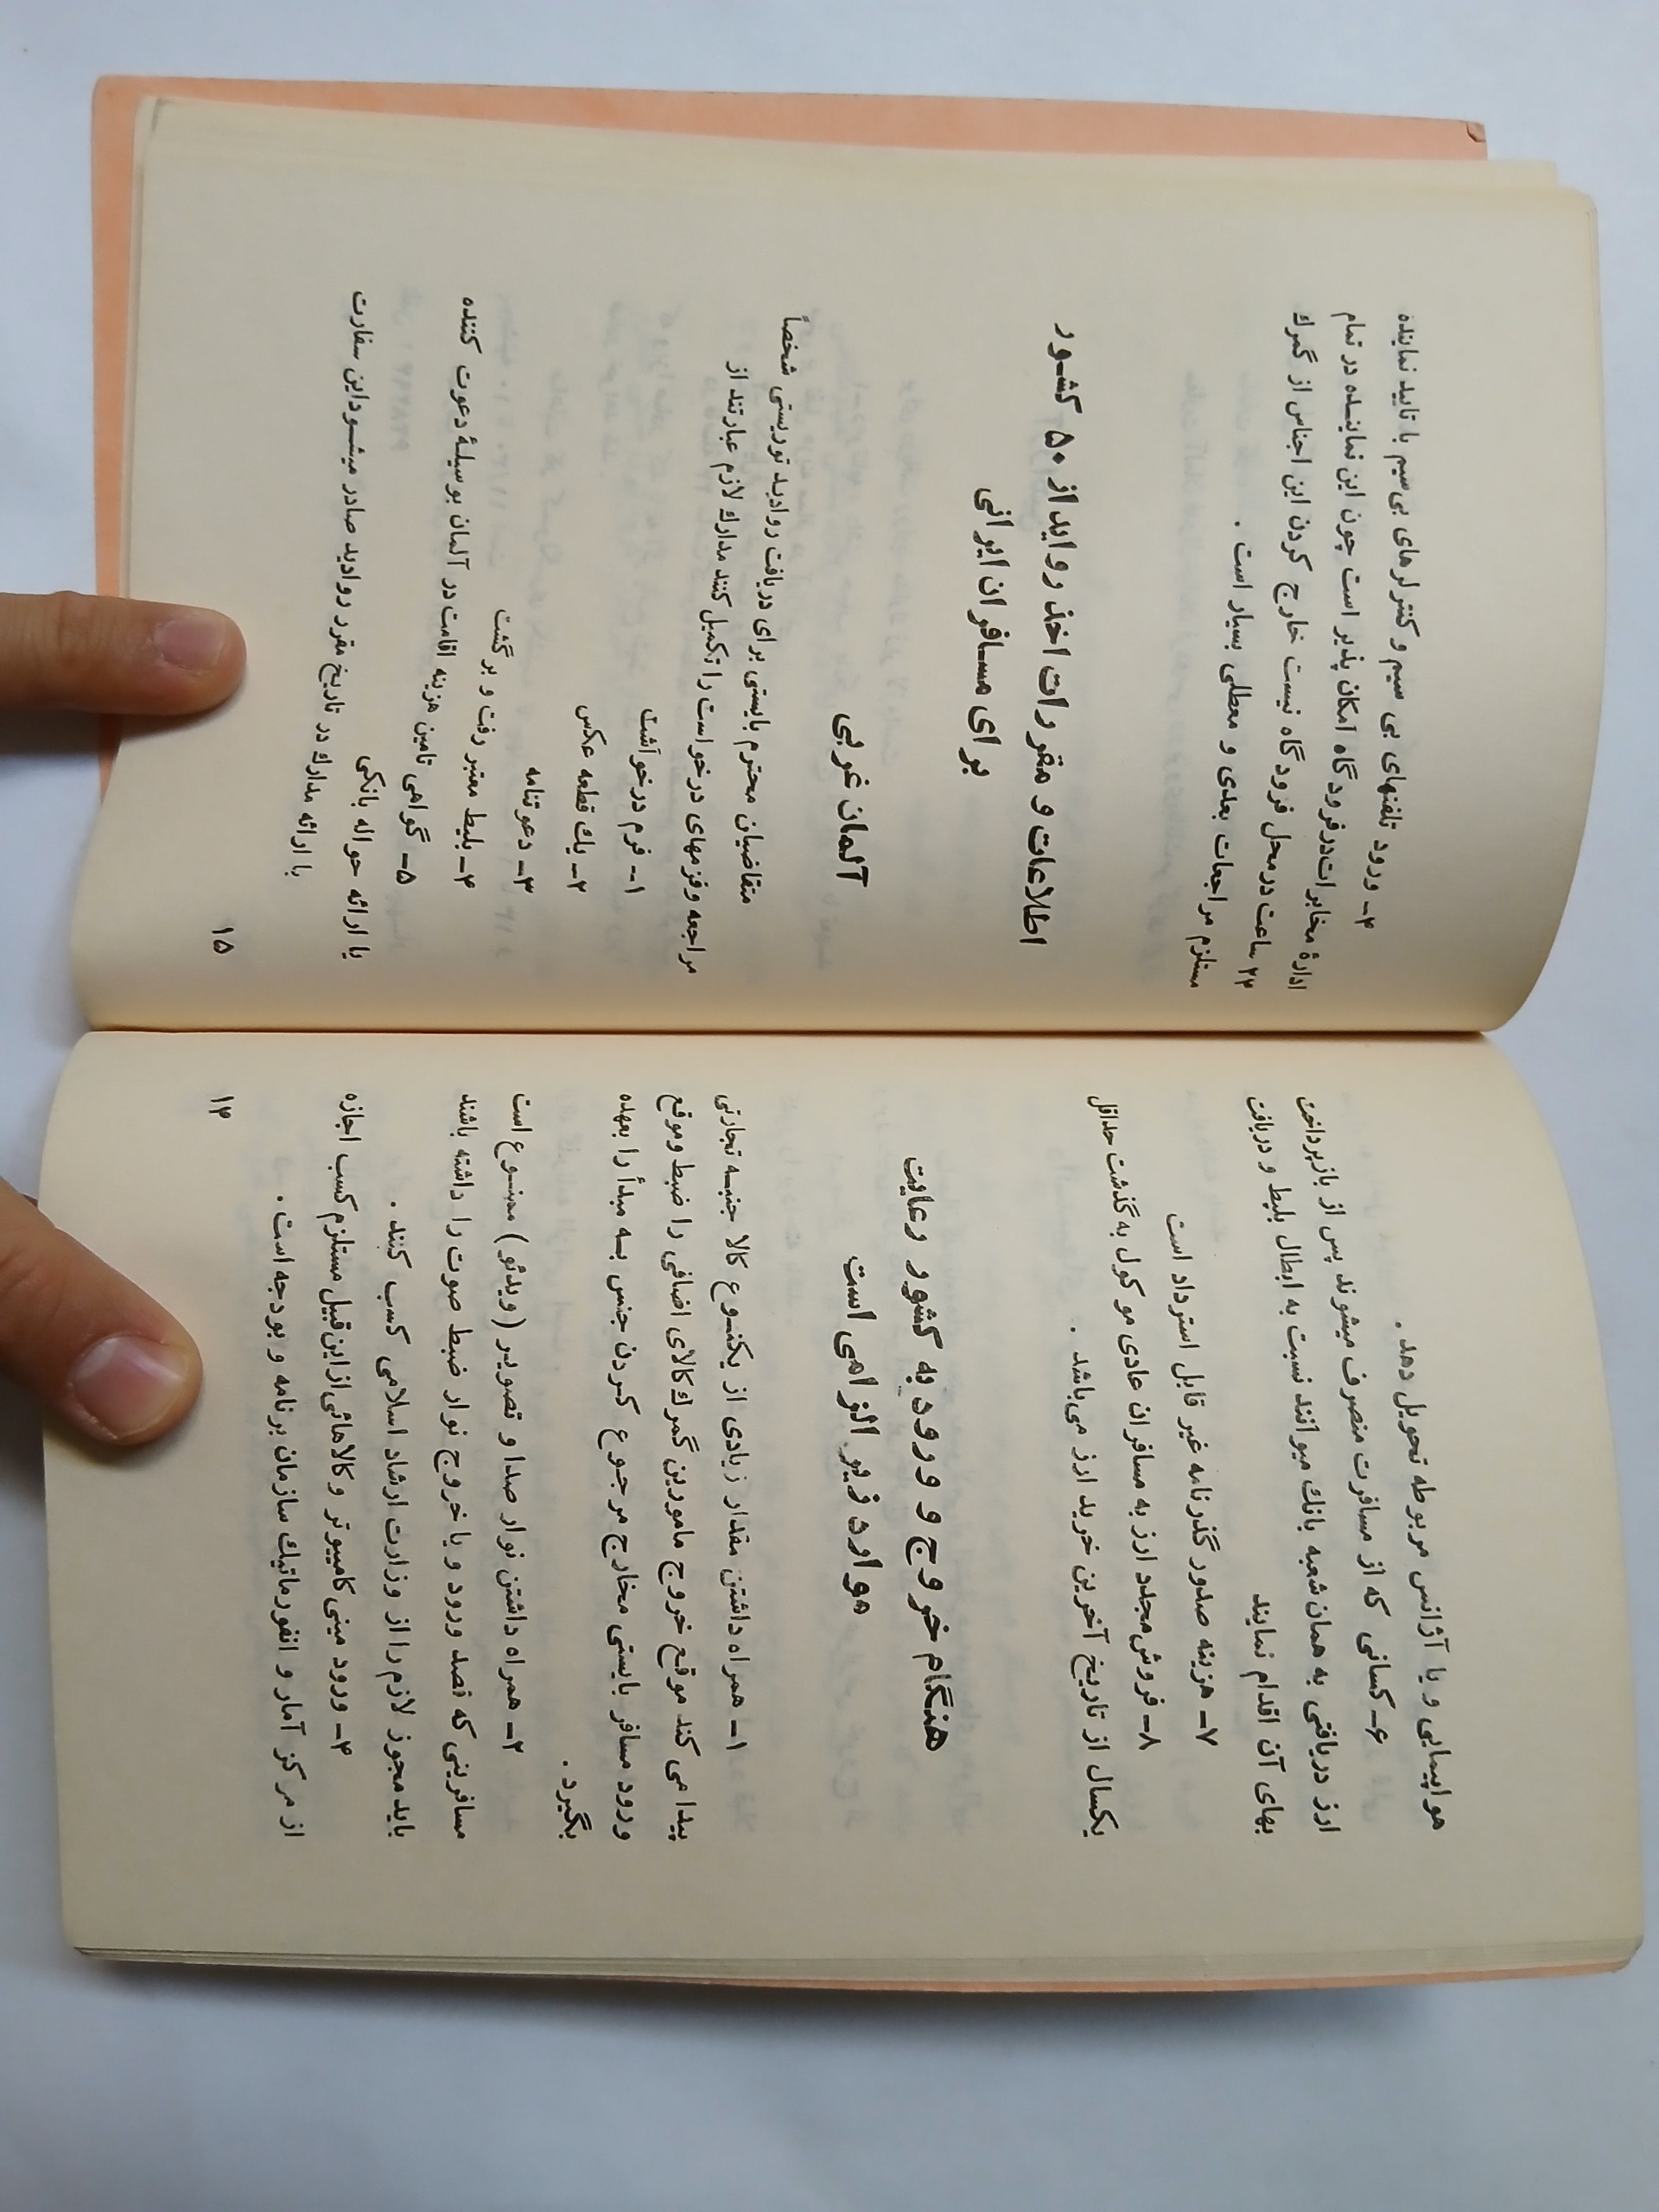 هواپیمایی و یا آژانس مربوطه تحویل دهد .
۶- کسانی که از مسافرت منصرف میشوند پس از بازپرداخت
ارز دریافتی به همان شعبه بانك میتوانند نسبت به ابطال بلیط و دریافت
بهای آن اقدام نمایند
۷- هزینه صدور گذرنامه غیر قابل استرداد است
۸- فروش مجدد ارز به مسافران عادی موکول به گذشت حداقل
یکسال از تاریخ آخرین خرید ارز می‌باشد .
هنگام خروج و ورود به کشور رعایت
موارد زیر الزامی است
۱- همراه داشتن مقدار زیادی از یکنوع کالا جنبه تجارتی
پیدا می کند موقع خروج مامورین گمرك کالای اضافی را ضبط وموقع
ورود مسافر بایستی مخارج مرجوع کردن جنس به مبدأ را بعهده
بگیرد .
۲- همراه داشتن نوار صدا و تصویر (ویدئو) ممنوع است
مسافرینی که قصد ورود و یا خروج نوار ضبط صوت را داشته باشند
باید مجوز لازم را از وزارت ارشاد اسلامی کسب کنند .
۳- ورود مینی کامپیوتر و کالاهائی از این قبیل مستلزم کسب اجازه
از مرکز آمار و انفورماتیك سازمان برنامه و بودجه است .
۱۴
۴- ورود تلفنهای بی سیم و کنترلرهای بی‌سیم با تایید نماینده
ادارهٔ مخابرات در فرودگاه امکان پذیر است چون این نماینده در تمام
۲۴ ساعت در محل فرودگاه نیست خارج کردن این اجناس از گمرك
مستلزم مراجعات بعدی و معطلی بسیار است .
اطلاعات و مقررات اخذ روادید از ۵۰ کشور
برای مسافران ایرانی
آلمان غربی
متقاضیان محترم بایستی برای دریافت روادید توریستی شخصاً
مراجعه و فرمهای درخواست را تکمیل کنند مدارك لازم عبارتند از
۱- فرم درخواست
۲- یك قطعه عکس
۳- دعوتنامه
۴- بلیط معتبر رفت و برگشت
۵- گواهی تامین هزینه اقامت در آلمان بوسیلهٔ دعوت کننده
یا ارائه حواله بانکی
با ارائه مدارك در تاریخ مقرر روادید صادر میشود این سفارت
۱۵